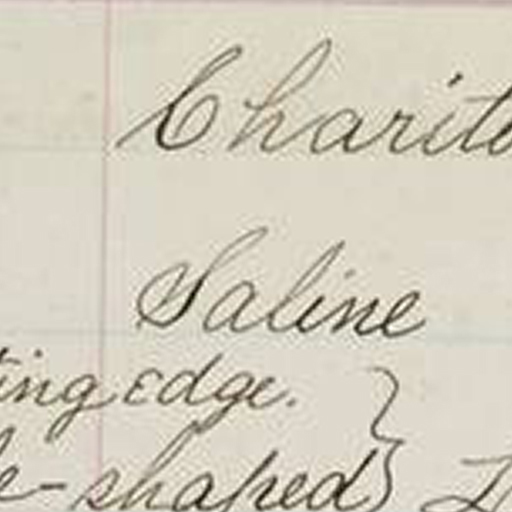 Charito
Saline
ting edge.
e-shaped}